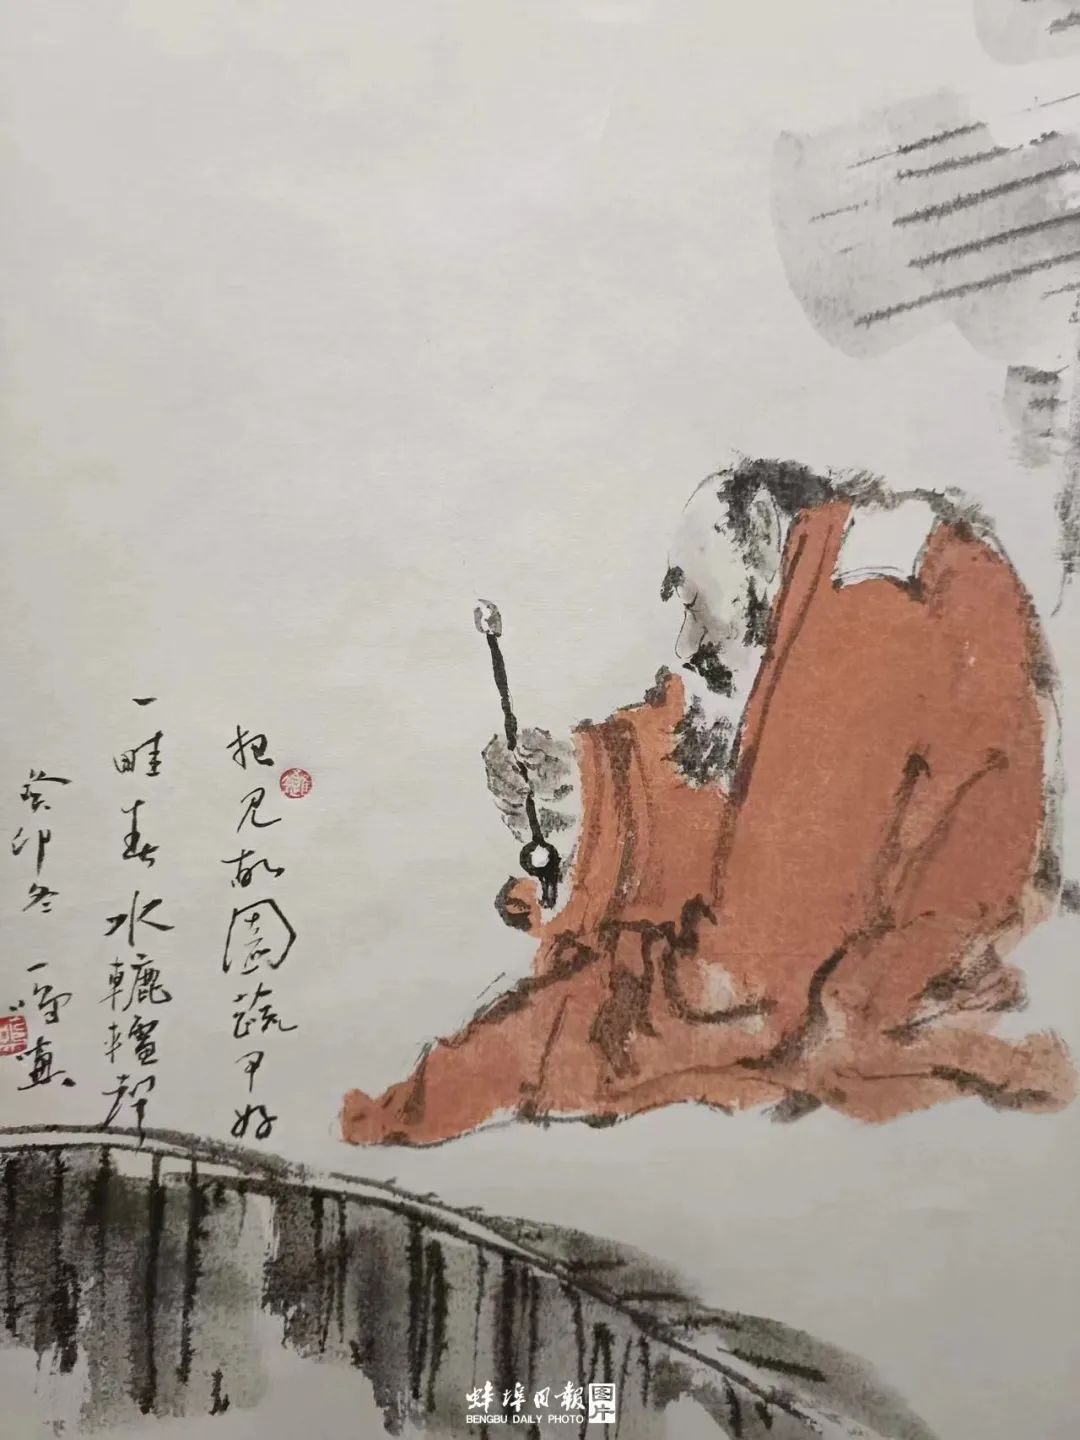 想见故園蔬甲好
一畦春水轆轤聲
癸卯冬一
蚌埠日報 图片
BENGBU DAILY PHOTO